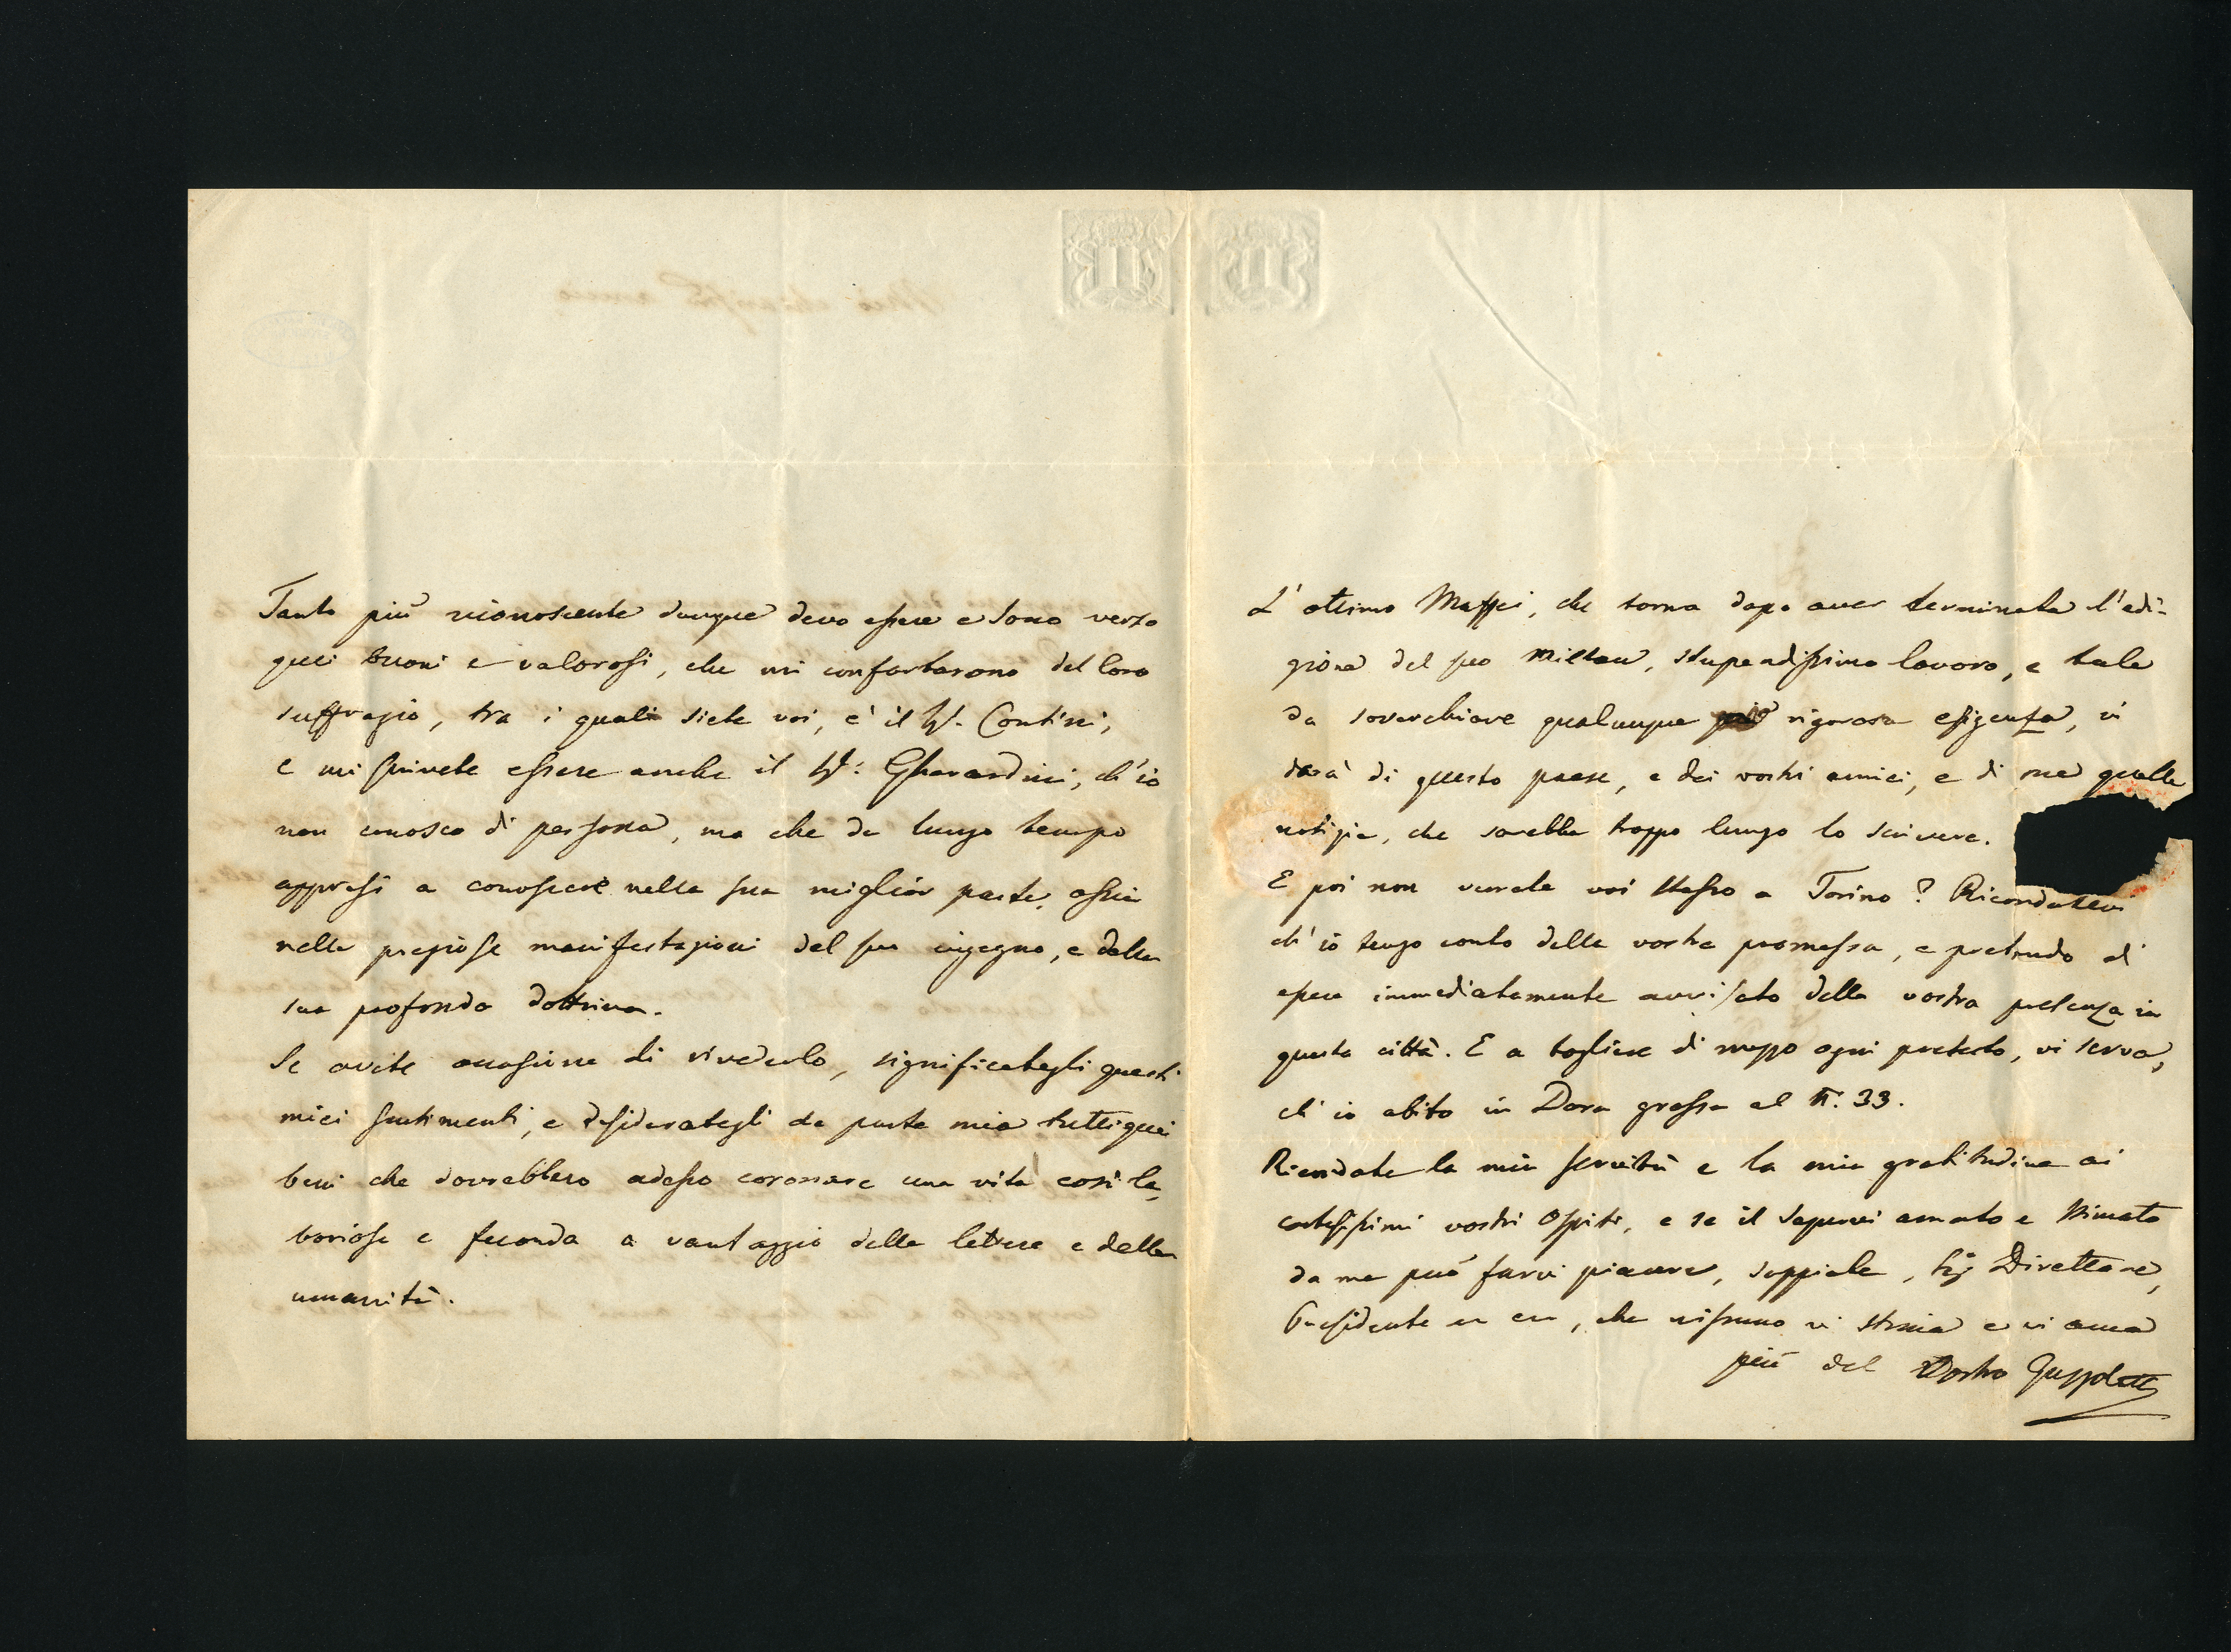 Tanto più riconoscente dunque devo essere e sono verso
quei buoni e valorosi, che mi confortarono del loro
suffragio, tra i quali siete voi, è il Contini,
e mi scrivete essere anche il Gherardini, ch'io
non conosco di persona, ma che da lungo tempo
appresi a conoscere nella sua miglior parte, ossia
nelle preziose manifestazioni del suo ingegno, e della
sua profonda dottrina.
Se avete occasione di rivederlo, significategli questi
miei sentimenti, e desiderategli da parte mia tutti quei
beni che dovrebbero adesso coronare una vita così la,
boriosa e feconda a vantaggio delle lettere e della
umanità.
L'ottimo Maffei, che torna dopo aver terminata l'edi-
zione del suo Milton, stupendissimo lavoro, e tale
da soverchiare qualunque rigorosa esigenza, vi
darà di questo paese, e dei vostri amici, e di me quelle
notizie, che sarebbe troppo lungo lo scrivere.
E poi non verrete voi stesso a Torino? Ricordatevi
ch'io tengo conto della vostra promessa, e pretendo di
essere immediatamente avvisato della vostra presenza in
questa città. E a togliere di mezzo ogni pretesto, vi serva,
ch'io abito in Dora grossa al n. 33.
Ricordate la mia servitù e la mia gratitudine ai
cortesissimi vostri ospiti, e se il sapervi amato e stimato
da me può farvi piacere, sappiate, Sig Direttore,
Presidente, che nissuno vi stima e vi ama
più del Vostro